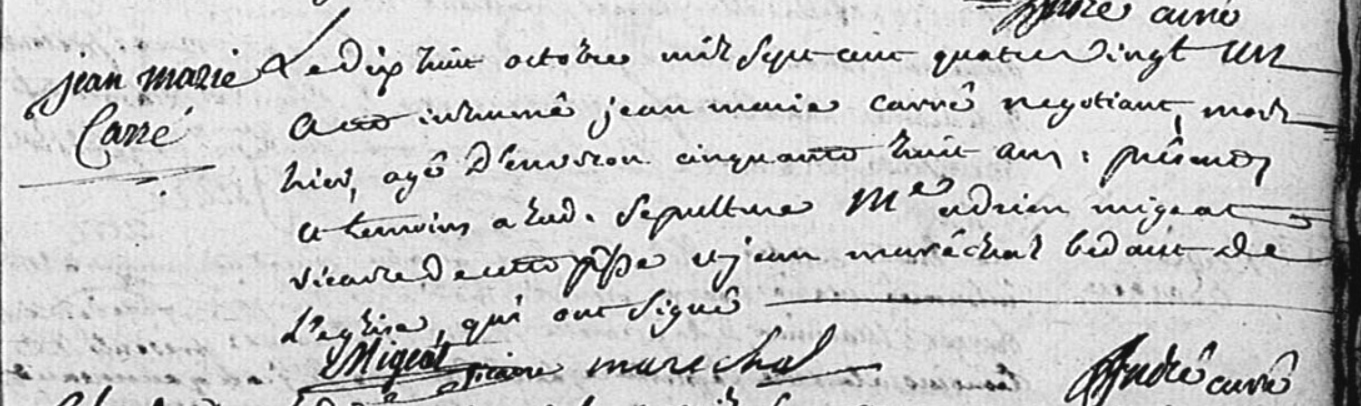 André curé
jean marie
Carré
Le dix huit octobre mil sept cent quatre vingt un
a eté inhumé jean marie carré negotiant, mort
hier, agé d'environ cinquante huit ans : présents
et temoins a lad. sepulture Me adrien migeot
vicaire de cette ppsse et jean maréchal bedaut de
l'eglise, qui ont signé
Migeot vicaire marechal André curé